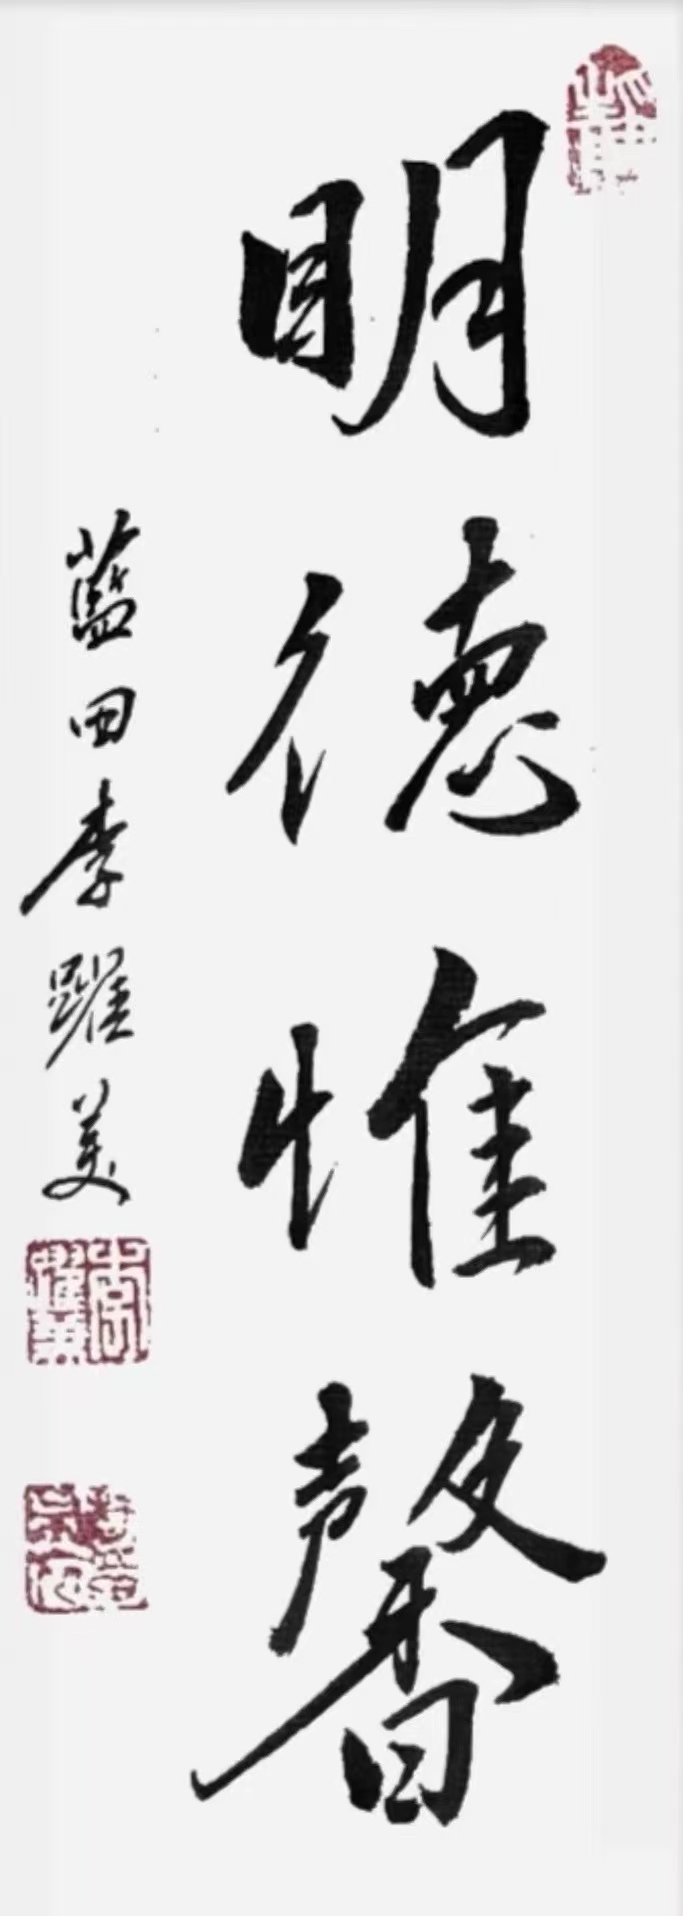 明德惟馨
藍田李躍美